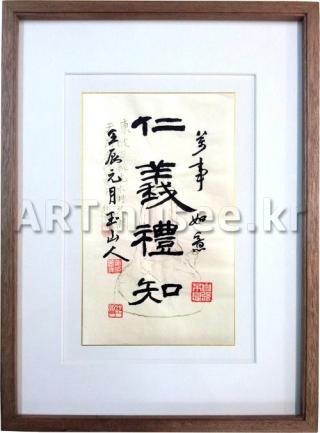 萬事如意
仁義禮知
壬辰元月玉山人
ARTmusee.kr